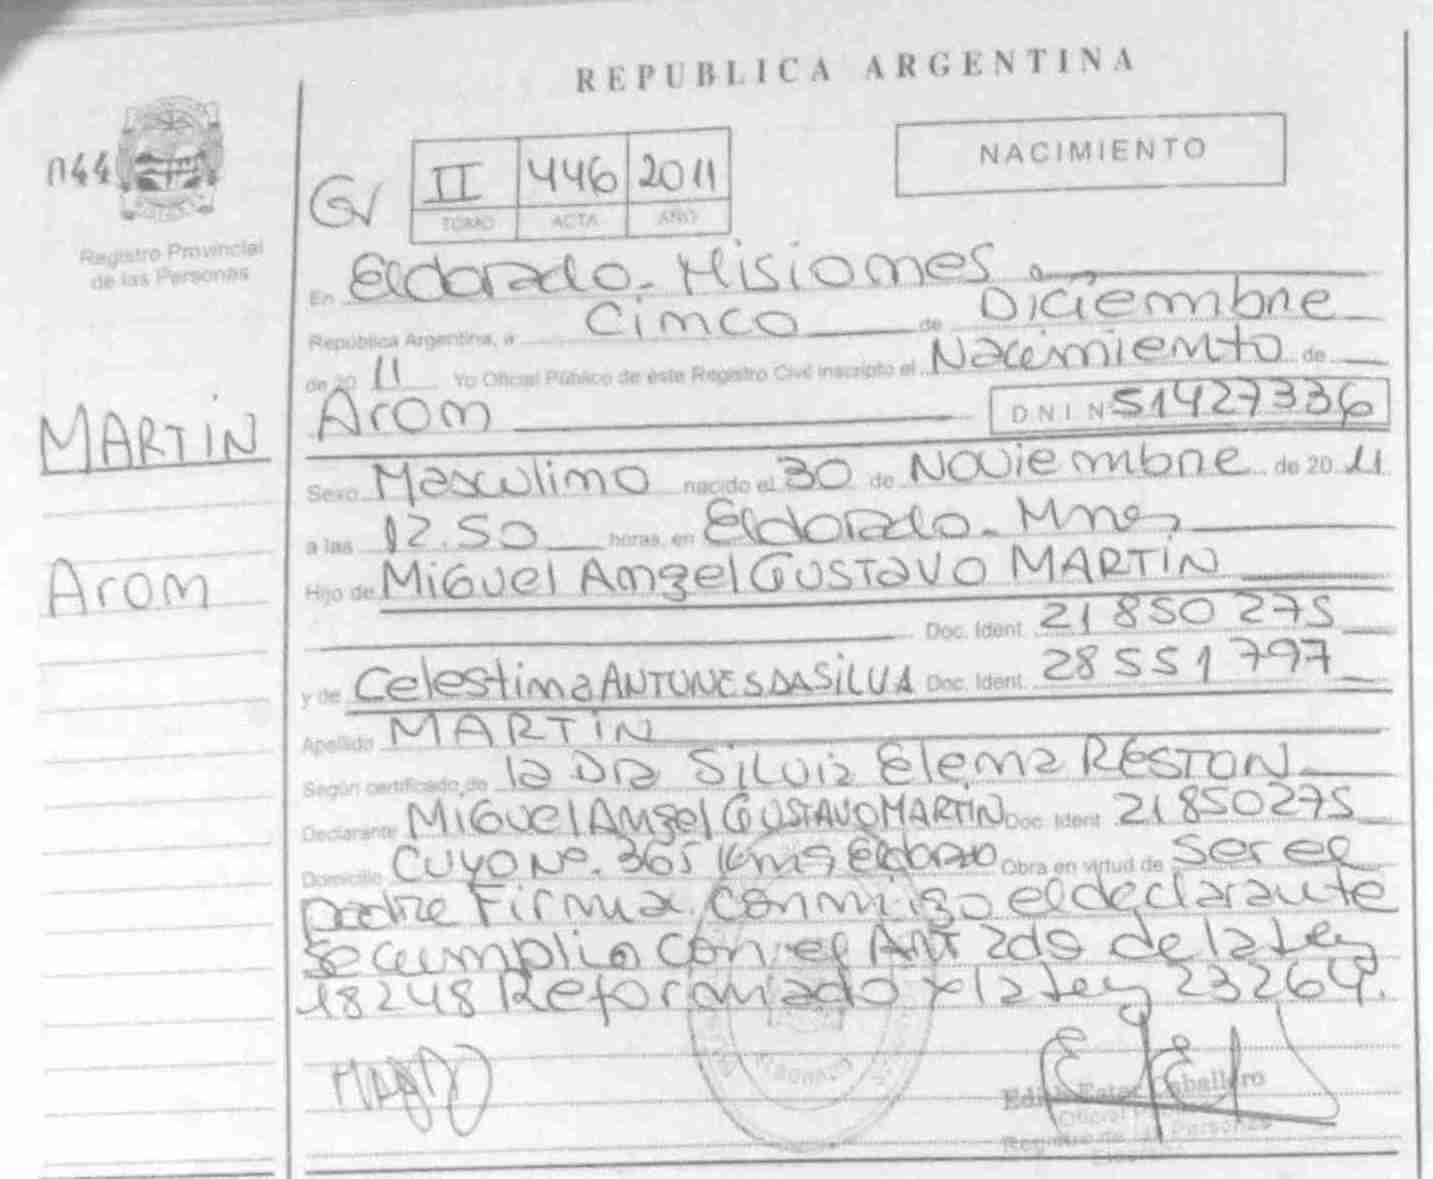 REPUBLICA ARGENTINA
NACIMIENTO
044
Registro Provincial
de las Personas
G/
II 446 2011
TOMO ACTA AÑO
En Eldorado - Misiones
República Argentina, a Cinco de Diciembre
de 20 11 Yo Oficial Público de este Registro Civil inscripto el Nacimiento de
Aron D N I Nº 51427336
MARTIN
Aron
Sexo Masculino nacido el 30 de Noviembre de 20 11
a las 12.50 horas, en Eldorado - Mnes
Hijo de Miguel Angel Gustavo MARTÍN
Doc. Ident. 21 850 275
y de Celestina ANTUNES DA SILVA Doc. Ident. 28 551 797
Apellido MARTIN
Según certificado de la Dra Silvia Elena RESTON
Declarante Miguel Angel Gustavo MARTIN Doc. Ident 21850275
Domicilio CUYO Nº 365 Km 9 Eldorado Obra en virtud de ser el
padre Firma conmigo el declarante
se cumplio con el Art 2do de la Ley
18248 Reformado x la Ley 23264.
Edith Ester Caballero
Oficial
Registro de las Personas